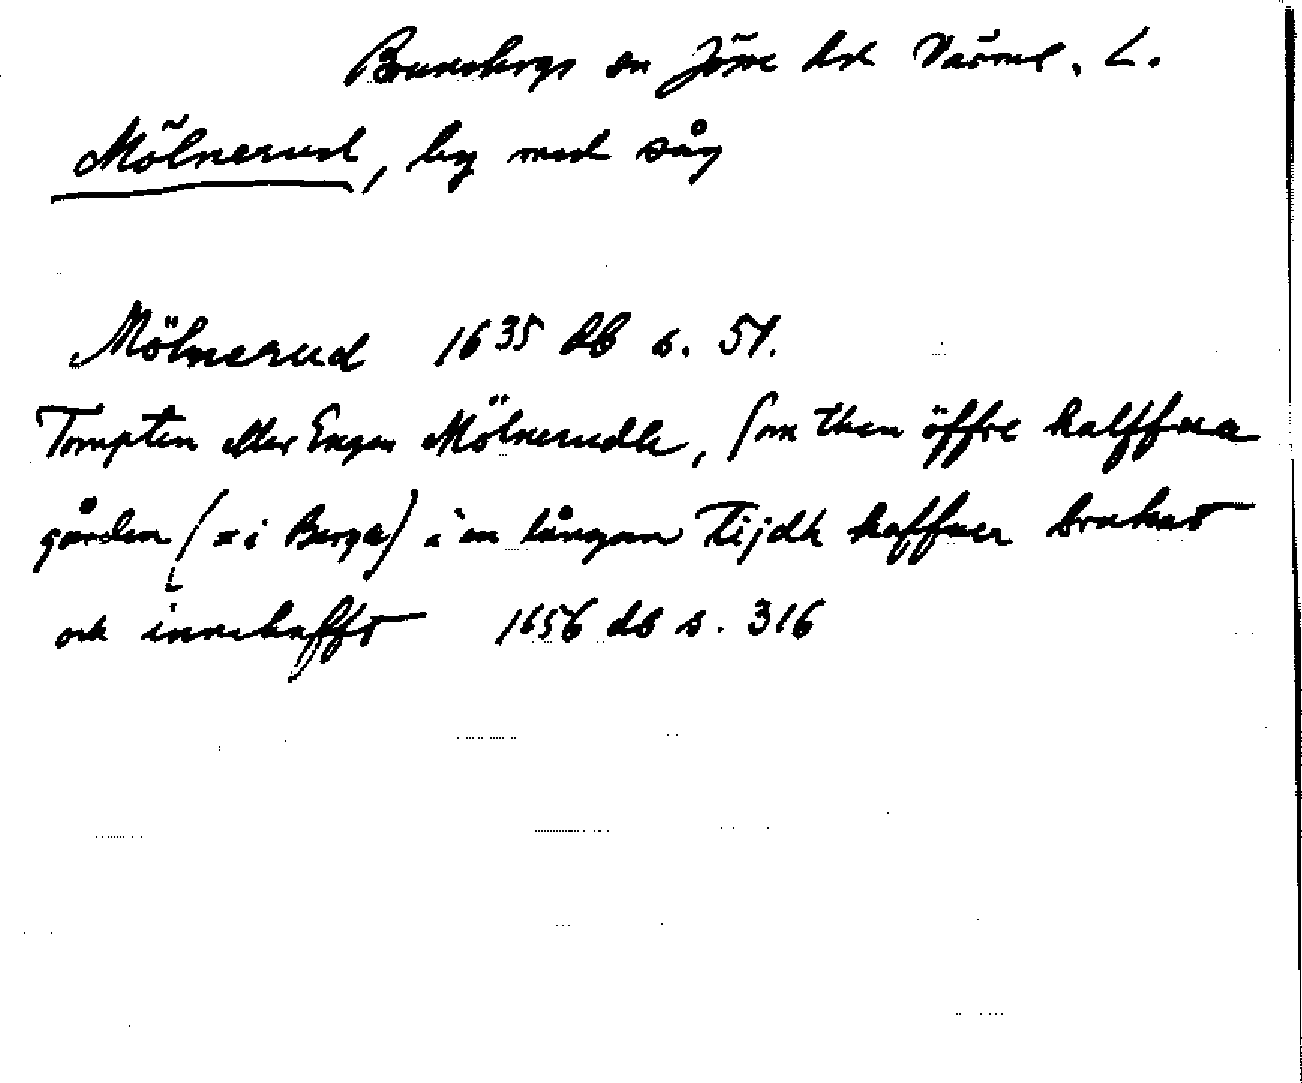 Brunskogs sn Jösse hd Värml. L.
Mölnerud, by med såg
Mölnerud 1635 db s. 51.
Tompten eller Engen Mölnerudh, som then öffre halffua
gården (i Berga) i en långan tijdh haffuer brukat
och innehafft 1656 db s. 316